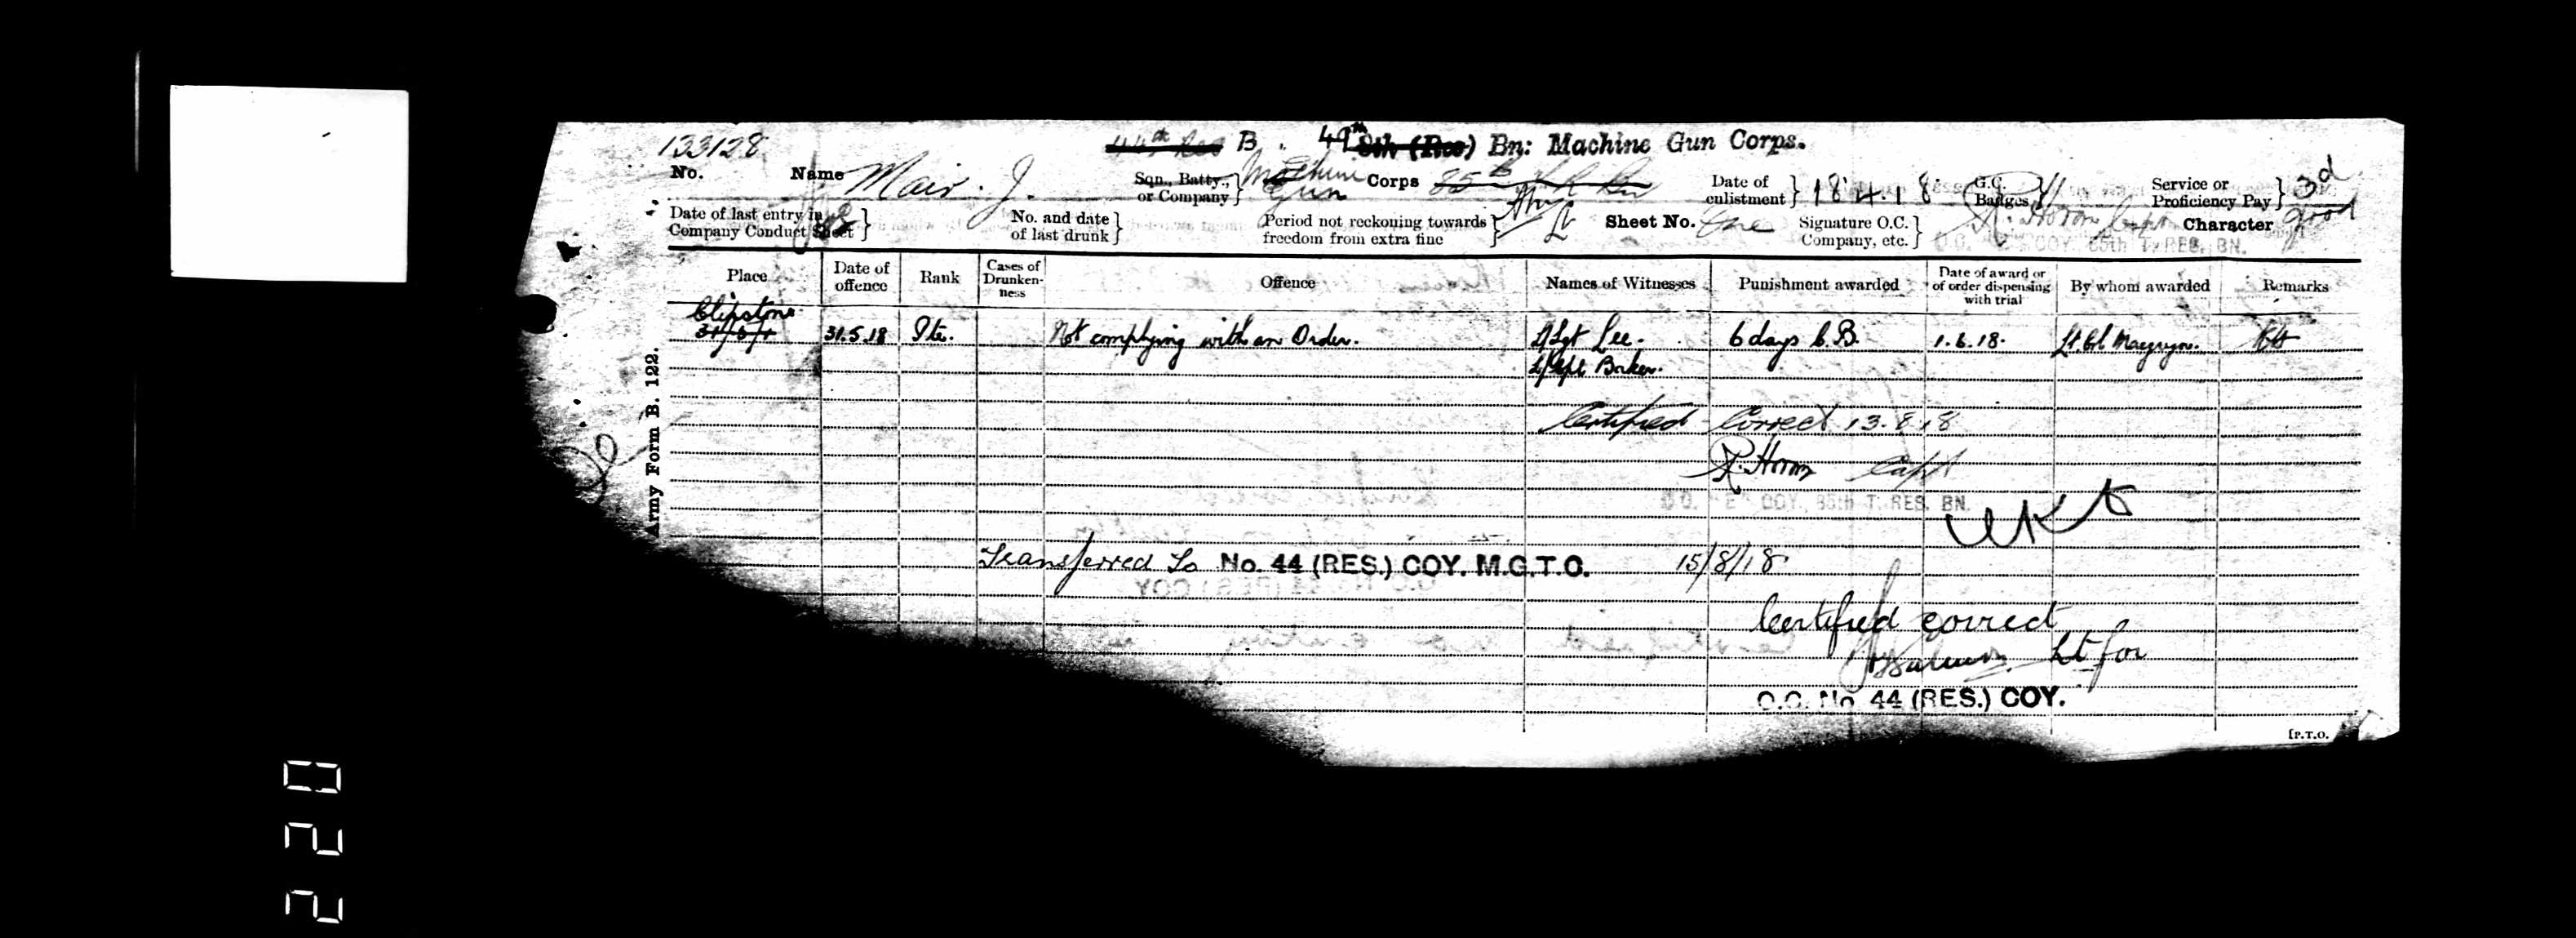 133128 44th Res B. 49th 8th (Res) Bn: Machine Gun Corps.
No. Name Mair. J. Sqn., Batty., or Company } Machine Gun Corps 85th Date of enlistment } 18.4.18 G.C. Badges } Service or Proficiency Pay } 3d
Date of last entry in Company Conduct Sheet } No. and date of last drunk } Period not reckoning towards freedom from extra fine } Lt Sheet No. One Signature O.C. Company, etc. } R. Horn Capt Character good
O.C. COY. 85th T. RES. BN.
Place Date of offence Rank Cases of Drunkenness Offence Names of Witnesses Punishment awarded Date of award or of order dispensing with trial By whom awarded Remarks
Clipstone
31/5/1 31.5.18 Pte. Not complying with an Order. Sgt Lee. 6 days C.B. 1.6.18. Lt. Col Macgregor.
Baker.
Certified Correct 13.8.18
R. Horn Capt
O.C. E COY. 85th T. RES. BN.
Transferred To No. 44 (RES.) COY. M.G.T.C. 15/8/18
Certified correct
Lt for
O.C. No 44 (RES.) COY.
Army Form B. 122.
[P.T.O.
220